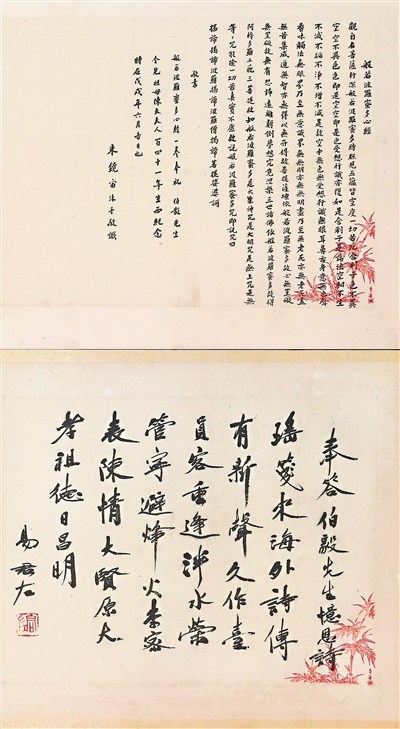 般若波羅蜜多心經
觀自在菩薩行深般若波羅蜜多時照見五蘊皆空度一切苦厄舍利子色不異
空空不異色色即是空空即是色受想行識亦復如是舍利子是諸法空相不生
不滅不垢不淨不增不減是故空中無色無受想行識無眼耳鼻舌身意無色聲
香味觸法無眼界乃至無意識界無無明亦無無明盡乃至無老死亦無老死盡
無苦集滅道無智亦無得以無所得故菩提薩埵依般若波羅蜜多故心無罣礙
無罣礙故無有恐怖遠離顛倒夢想究竟涅槃三世諸佛依般若波羅蜜多故得
阿耨多羅三藐三菩提故知般若波羅蜜多是大神咒是大明咒是無上咒是無
等等咒能除一切苦真實不虛故說般若波羅蜜多咒即說咒曰
揭諦揭諦波羅揭諦波羅僧揭諦菩提娑婆訶
敬書
般若波羅蜜多心經一卷奉祝 伯毅先生
令先祖母陳太夫人百四十一年生西紀念
時在戊戌年六月吉日也
朱鏡宙沐手敬識
奉答伯毅先生憶恩詩
瑤箋來海外詩傳
有新聲久作臺
員客重逢泮水榮
管寧避烽火李密
表陳情大賢原大
孝祖德日昌明
易君左